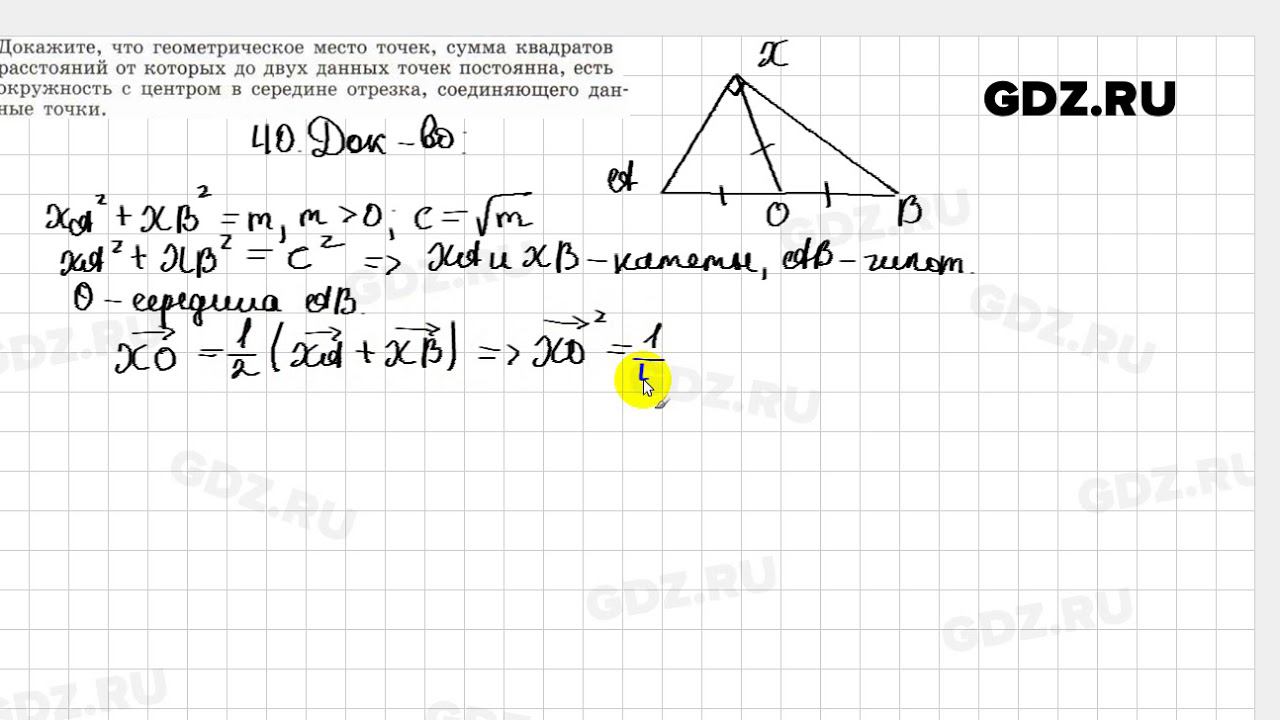 Докажите, что геометрическое место точек, сумма квадратов
расстояний от которых до двух данных точек постоянна, есть
окружность с центром в середине отрезка, соединяющего дан-
ные точки.
GDZ.RU
40. Док-во:
X
A
O
B
XA² + XB² = m, m > 0; c = √m
XA² + XB² = c² => XA и XB – катеты, AB – гипот.
O – середина AB.
XO = 1/2 (XA + XB) => XO² = 1/4
GDZ.RU
GDZ.RU
GDZ.RU
GDZ.RU
GDZ.RU
GDZ.RU
GDZ.RU
GDZ.RU
GDZ.RU
GDZ.RU